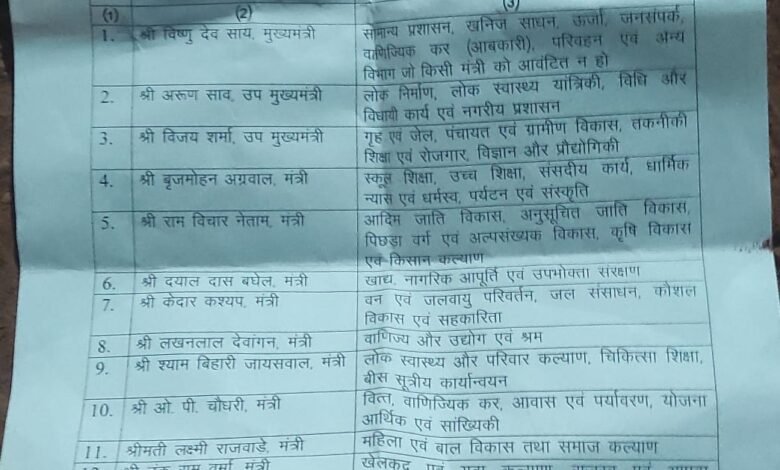 (1) (2) (3)
1. श्री विष्णु देव साय, मुख्यमंत्री सामान्य प्रशासन, खनिज साधन, ऊर्जा, जनसंपर्क,
वाणिज्यिक कर (आबकारी), परिवहन एवं अन्य
विभाग जो किसी मंत्री को आवंटित न हो
2. श्री अरूण साव, उप मुख्यमंत्री लोक निर्माण, लोक स्वास्थ्य यांत्रिकी, विधि और
विधायी कार्य एवं नगरीय प्रशासन
3. श्री विजय शर्मा, उप मुख्यमंत्री गृह एवं जेल, पंचायत एवं ग्रामीण विकास, तकनीकी
शिक्षा एवं रोजगार, विज्ञान और प्रौद्योगिकी
4. श्री बृजमोहन अग्रवाल, मंत्री स्कूल शिक्षा, उच्च शिक्षा, संसदीय कार्य, धार्मिक
न्यास एवं धर्मस्व, पर्यटन एवं संस्कृति
5. श्री राम विचार नेताम, मंत्री आदिम जाति विकास, अनुसूचित जाति विकास,
पिछड़ा वर्ग एवं अल्पसंख्यक विकास, कृषि विकास
एवं किसान कल्याण
6. श्री दयाल दास बघेल, मंत्री खाद्य, नागरिक आपूर्ति एवं उपभोक्ता संरक्षण
7. श्री केदार कश्यप, मंत्री वन एवं जलवायु परिवर्तन, जल संसाधन, कौशल
विकास एवं सहकारिता
8. श्री लखनलाल देवांगन, मंत्री वाणिज्य और उद्योग एवं श्रम
9. श्री श्याम बिहारी जायसवाल, मंत्री लोक स्वास्थ्य और परिवार कल्याण, चिकित्सा शिक्षा,
बीस सूत्रीय कार्यान्वयन
10. श्री ओ. पी. चौधरी, मंत्री वित्त, वाणिज्यिक कर, आवास एवं पर्यावरण, योजना
आर्थिक एवं सांख्यिकी
11. श्रीमती लक्ष्मी राजवाड़े, मंत्री महिला एवं बाल विकास तथा समाज कल्याण
राम वर्मा, मंत्री खेलकूद एवं